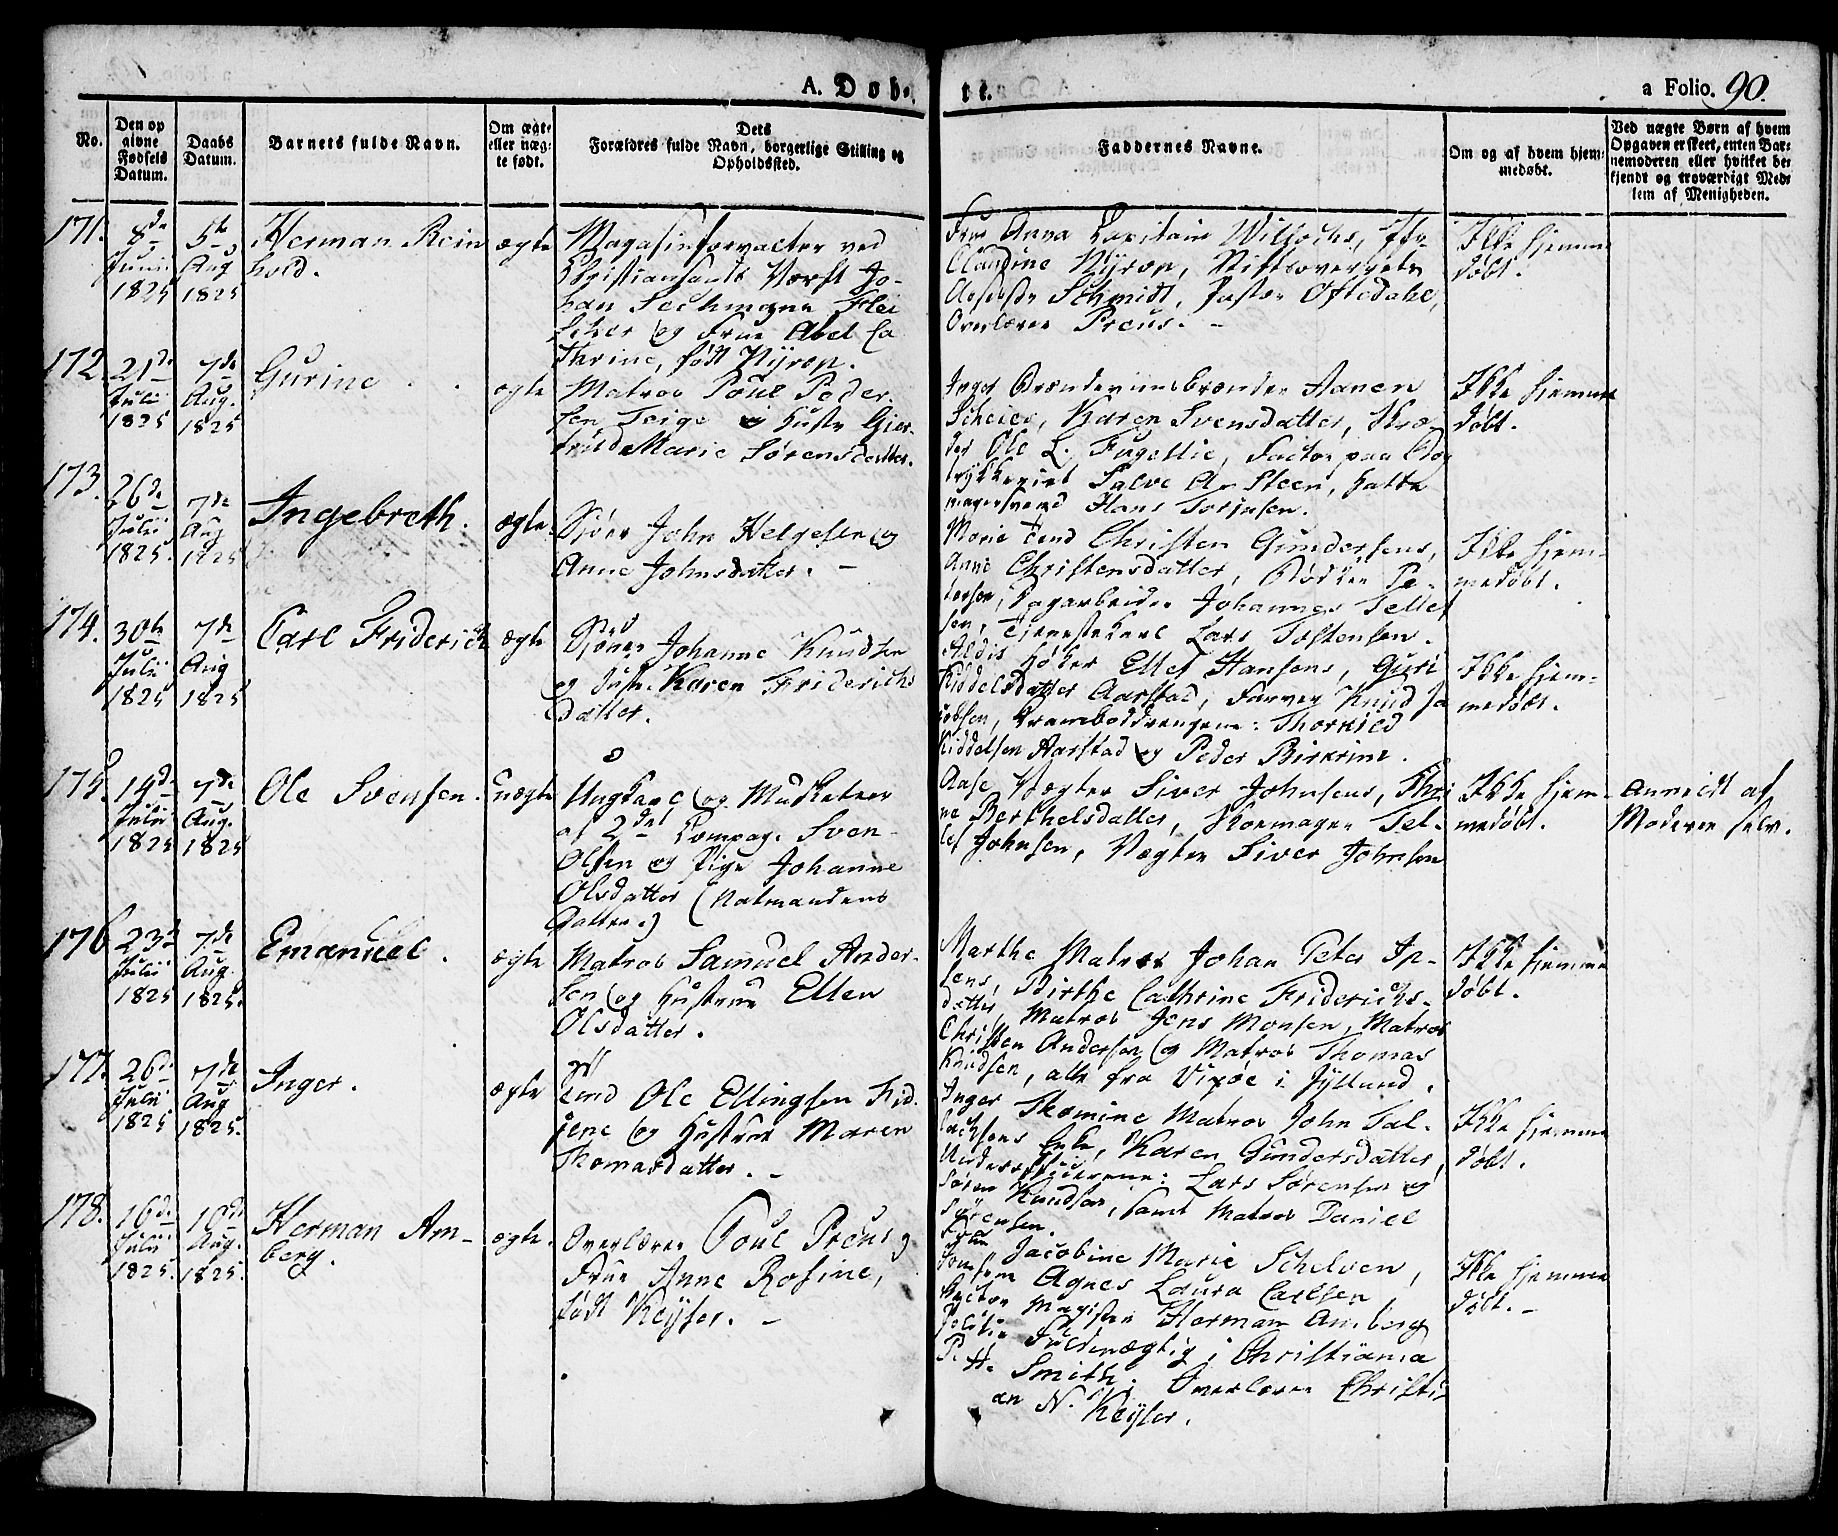 A. Døbte.
a Folio. 90.
No.
Den op givne Fødsels Datum.
Daabs Datum.
Barnets fulde Navn.
Om ægte eller næg- te født.
Dets Forældres fulde Navn, borgerlige Stilling og Opholdssted.
Faddernes Navne.
Om og af hvem hjem- medøbt.
Ved uægte Børn af hvem Opgaven er skeet, enten Bar- nemoderen eller hvilket be- kjendt og troværdigt Med- lem af Menigheden.
171. 8de Junii 1825
5te Aug 1825
Herman Rein
hold.
ægte
Magasinforvalter ved
Christiansands Værft Jo-
han Sechmann Flei
scher og Frue Abel Ca
thrine, født Nyrop.
Frue Anna Capitain Willochs, Jfr
Claudine Nyrop, Stiftsoverrets
Assessor Schmidt, Pastor Oftedahl,
Overlærer Preus. -
Ikke hjemme
døbt.
172. 21de Julii 1825
7de Aug. 1825
Gurine
ægte
Matros Poul Peder-
sen Teige og Hustr Gier-
trud Marie Sørensdatter.
Inger Brændeviinsbrænder Aanen
Scheies, Karen Svensdatter, Skræ-
der Ole L. Fugellie, Factor paa Bog
trykkeriet Salve A. Steen, Hatte
magersvend Hans Torjusen.
Ikke hjemme
døbt.
173. 26de Julii 1825.
7de Aug 1825
Ingebreth.
ægte.
John Helgesen og
Anne Johnsdatter. -
Marie Christen Gundersens,
Anne Christensdatter, Bødker Pe-
dersen, Dagarbeider Johannes Tellef
sen, Tjenestekarl Lars Tostensen.
Ikke hjem-
medøbt.
174. 30te Julii 1825
7de Aug 1825
Carl Friderich
ægte
Johanne Knudsen
og Hustr. Karen Friderichs
datter.
Aldis Høker Ellef Hansens, Guri
Kiddelsdatter Aarstad, Farver Knud Ja
cobsen, Kramboddrengene: Thorkild
Kiddelsen Aarstad og Peder Birkrim.
Ikke hjem-
medøbt.
175. 14de Julii 1825
7de Aug. 1825
Ole Svensen.
Uægte
Ungkarl og Musketeer
af 2det Compag. Sven
Olsen og Pige Johanne
Olsdatter (Natmandens
Datter.)
Aase Vægter Siver Johnsens, Thri
ne Berthelsdatter, Skomager Tel-
lef Johnsen, Vægter Siver Johnsen
Ikke hjem-
medøbt.
Anmeldt af
Moderen selv.
176 23de Julii 1825
7de Aug. 1825.
Emanuel.
ægte
Matros Samuel Ander-
sen og Hustrue Ellen
Olsdatter.
Marthe Matros Johan Peter Ip-
sens, Birthe Cathrine Friderichs-
datter, Matros Jens Monsen, Matros
Christen Andersen og Matros Thomas
Knudsen, alle fra i Jylland.
Ikke hjemme
døbt.
177. 26de Julii 1825
7de Aug 1825.
Inger.
ægte
Ole Ellingsen Fid-
jene og Hustrue Maren
Thomasdatter. -
Inger Thomine Matros John Sal-
lachsens Enke, Karen Gundersdatter,
Lars Sørensen og
Søren Knudsen, samt Matros Daniel
Sørensen.
Ikke hjemme
døbt.
178. 16de Julii 1825.
10de Aug. 1825.
Herman Am-
berg.
ægte.
Overlærer Poul Preus og
Frue Anne Rosine,
født Keyser. -
Frue Jacobine Marie Schelven,
Jomfru Agnes Laura Carlsen,
Rector Magister Herman Amberg
Politie Fuldmægtig i Christiania
P. H. Smith. Overlærer Christi
an N. Keyser.
Ikke hjemme
døbt. -